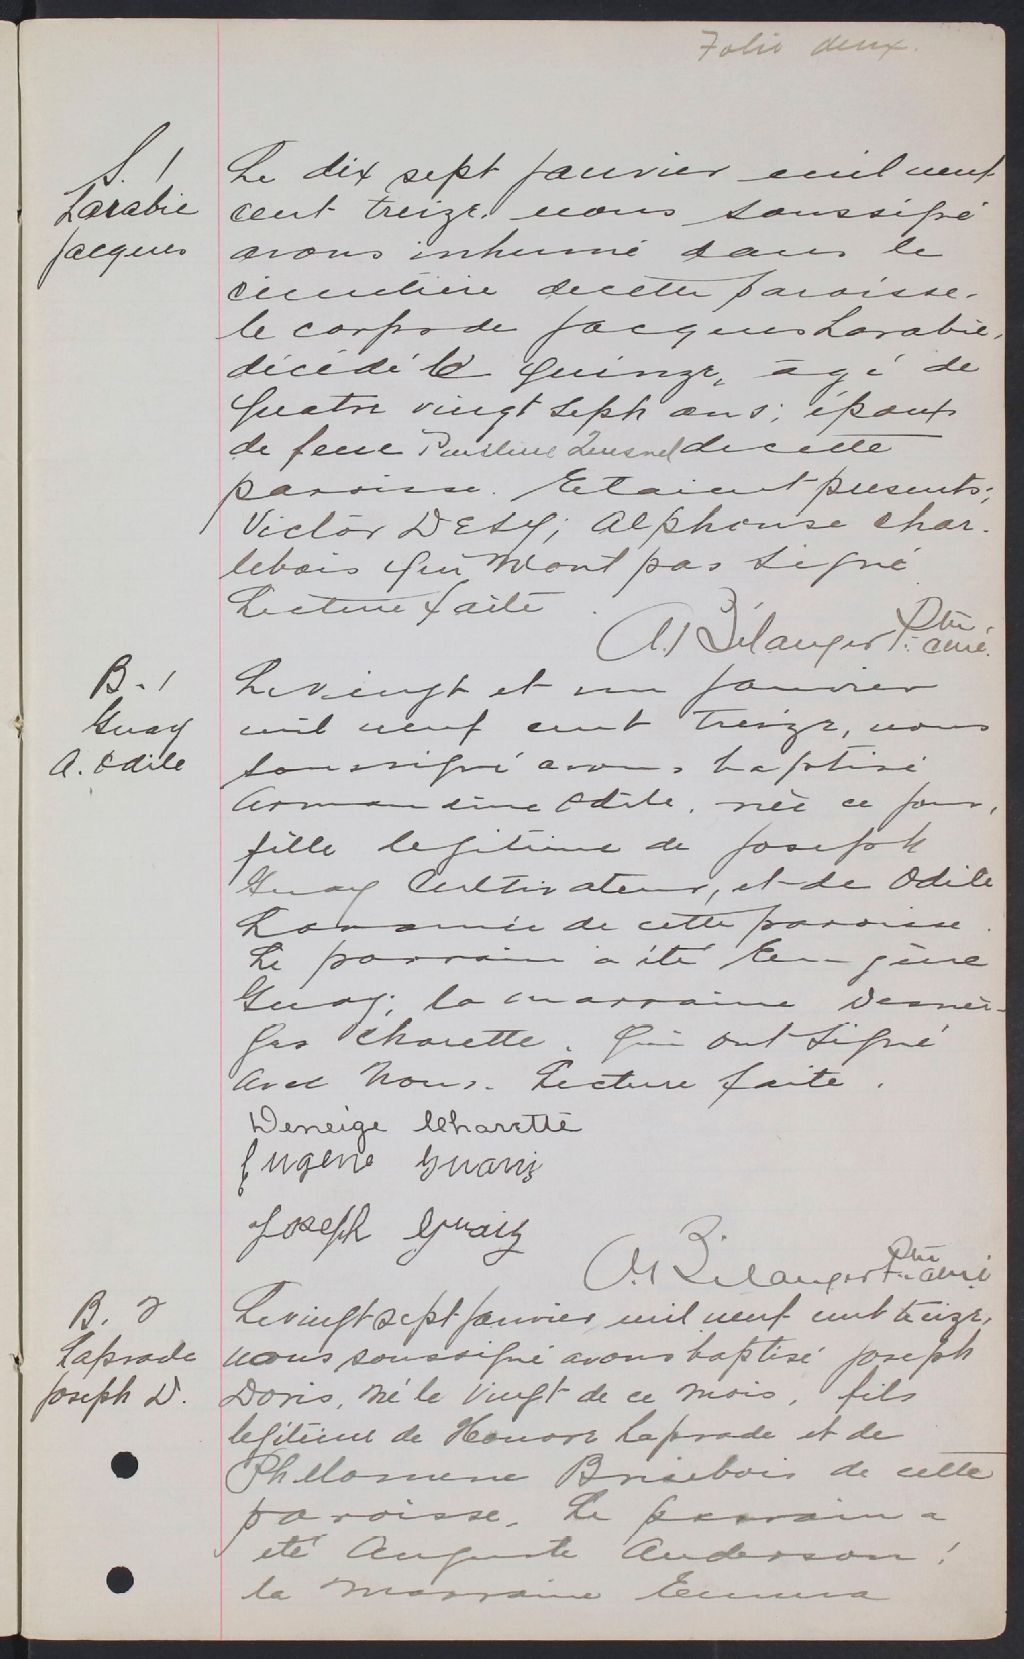 Folio deux.
S. 1
Larabie
Jacques
Le dix sept Janvier mil neuf
cent treize, nous soussigné
avons inhumé dans le
cimetière de cette paroisse.
le corps de Jacques Larabie,
décédé le quinze, agé de
quatre vingt sept ans; époux
de feue Pauline Quesnel de cette
paroisse. Etaient presents;
Victor Desy; Alphonse Char-
lebois qui n'ont pas signé
Lecture faite.
A. Bélanger Ptre curé.
B. 1
Guay
A. Odile
Le vingt et un Janvier
mil neuf cent treize, nous
soussigné avons baptisé
Armandine Odile, née ce jour,
fille legitime de Joseph
Guay Cultivateur, et de Odile
Laramée de cette paroisse.
Le parrain a été Eugène
Guay; la marraine Desnei-
ges Charette. Qui ont signé
avec nous. Lecture faite.
Deneige Charette
Eugene Guay
Joseph Guay
A. Bélanger Ptre curé
B. 2
Laprade
Joseph D.
Le vingt sept Janvier mil neuf cent treize,
nous soussigné avons baptisé Joseph
Doris, né le vingt de ce mois, fils
legitime de Honore Laprade et de
Philomene Brisebois de cette
paroisse. Le parrain a
été Auguste Anderson;
la marraine Emma